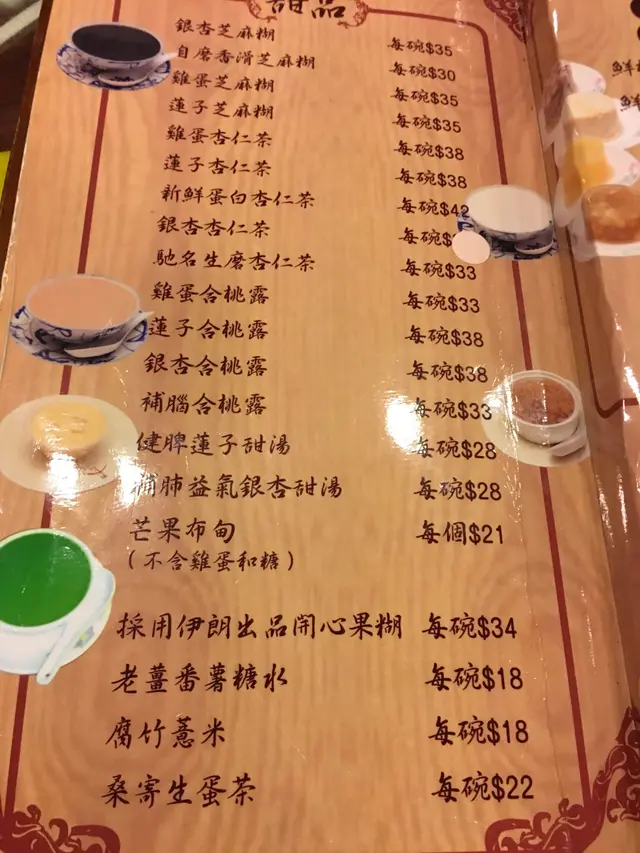 甜品
銀杏芝麻糊 每碗$35
自磨香滑芝麻糊 每碗$30
雞蛋芝麻糊 每碗$35
蓮子芝麻糊 每碗$35
雞蛋杏仁茶 每碗$38
蓮子杏仁茶 每碗$38
新鮮蛋白杏仁茶 每碗$42
銀杏杏仁茶 每碗$
馳名生磨杏仁茶 每碗$33
雞蛋合桃露 每碗$33
蓮子合桃露 每碗$38
銀杏合桃露 每碗$38
補腦合桃露 每碗$33
健脾蓮子甜湯 每碗$28
補肺益氣銀杏甜湯 每碗$28
芒果布甸 每個$21
(不含雞蛋和糖)
採用伊朗出品開心果糊 每碗$34
老薑番薯糖水 每碗$18
腐竹薏米 每碗$18
桑寄生蛋茶 每碗$22
鮮
鮮